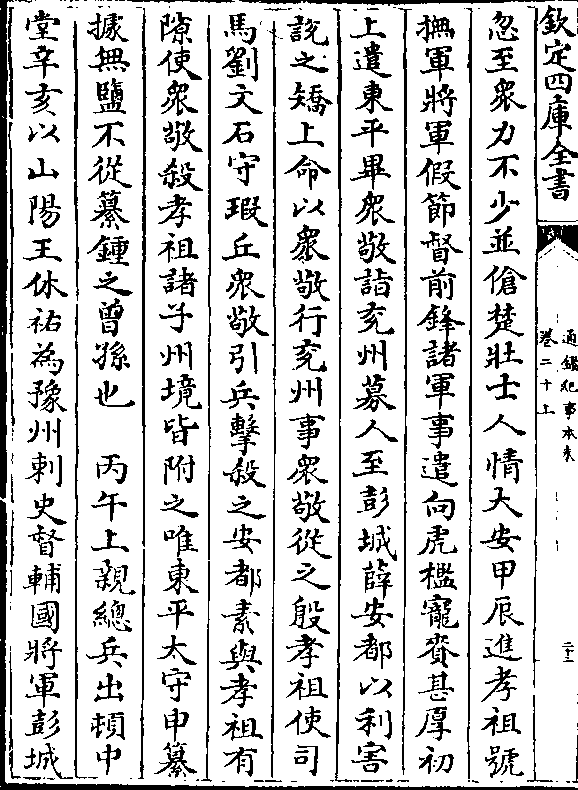 欽定四庫全書
通鑑紀事本末
卷二十上
二十二
忽至衆力不少並傖楚壯士人情大安甲辰進孝祖號
撫軍將軍假節督前鋒諸軍事遣向虎檻寵賚甚厚初
上遣東平畢衆敬詣兖州募人至彭城薛安都以利害
說之矯上命以衆敬行兖州事衆敬從之殷孝祖使司
馬劉文石守瑕丘衆敬引兵擊殺之安都素與孝祖有
隙使衆敬殺孝祖諸子州境皆附之唯東平太守申纂
據無鹽不從纂鍾之曾孫也　丙午上親總兵出頓中
堂辛亥以山陽王休祐為豫州刺史督輔國將軍彭城